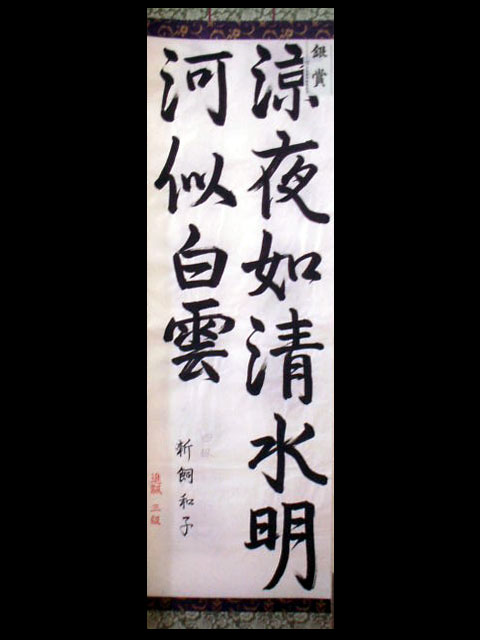 銀賞
涼夜如清水明
河似白雲
新飼和子
三級